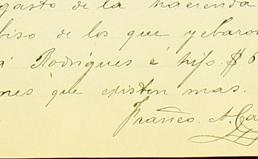 gasto de la hacienda
biso de los que yebaron
á Rodrigues é hijo. $ 6
nes que existen mas.
Franco. A. Ca